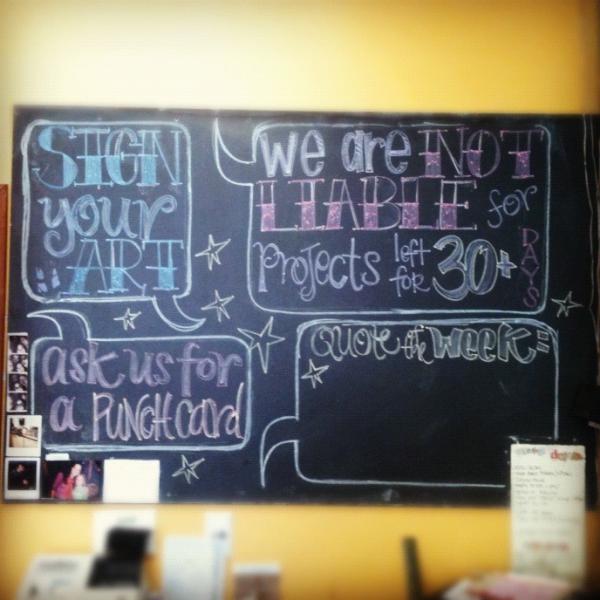 SIGN
your
"ART
we are NOT
LIABLE for
projects left for 30+ DAYS
ask us for
a PUNCH card
QUOTE of the WEEK: